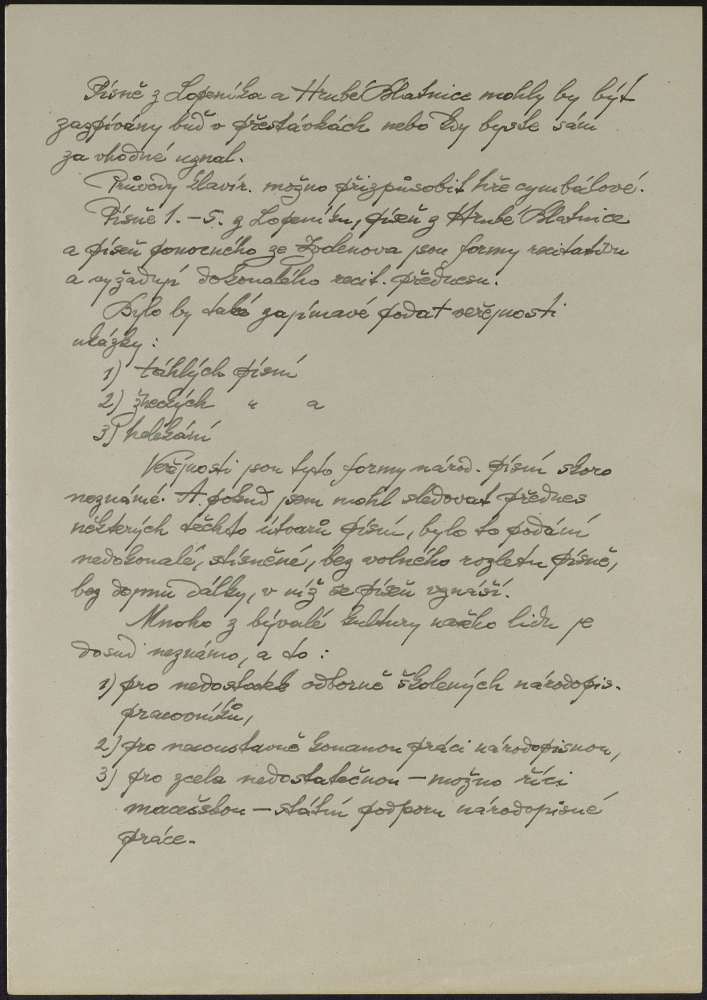 Písně z Lopeníka a Hrubé Blatnice mohly by být
zazpívány buď v přestávkách nebo kdy byste sám
za vhodné uznal.
Průvody klavír. možno přizpůsobit hře cymbálové.
Písně 1. – 5. z Lopeníku, píseň z Hrubé Blatnice
a píseň ponocného ze jsou formy recitativu
a vyžadují dokonalého recit. přednesu.
Bylo by také zajímavé podat veřejnosti
ukázky:
1) táhlých písní
2) žneckých " a
3) helekání
Veřejnosti jsou tyto formy národ. písní skoro
neznámé. A pokud jsem mohl sledovat přednes
některých těchto útvarů písní, bylo to podání
nedokonalé, stísněné, bez volného rozletu písně,
bez dojmu dálky, v níž se píseň vznáší.
Mnoho z bývalé kultury našeho lidu je
dosud neznámo, a to:
1) pro nedostatek odborně školených národopis.
pracovníků,
2) pro nesoustavně konanou práci národopisnou,
3) pro zcela nedostatečnou – možno říci
macešskou – státní podporu národopisné
práce.